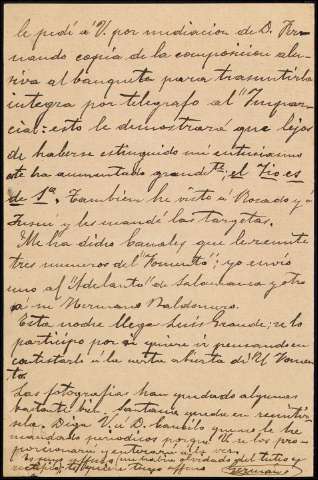 le pedí á V. por mediacion de D. Fer-
nando copia de la composicion alu-
siva al banquete para trasmitirla
integra por telegrafo al "Impar-
cial: esto le demostrará que lejos
de haberse estinguido mi entusiasmo
ha aumentado grande; el Tio es
de 1ª. Tambien he visto á Rosado y á
y les mandé las targetas.
Me ha dicho Canales que le remite
tres numeros del "Fomento"; yo envio
uno al "Adelanto" de Salamanca y otro
a mi Hermano Baldomero.
Esta noche llega Luis Grande; se lo
participo por si quiere ir pensando en
contestarle á la carta abierta del
to.
Las fotografias han quedado algunas
bastante bien. Santana queda en remitir-
sela. Diga V. á D. que no le he
mandado periodicos porque V. se los pro-
porcionará y enterará á la vez.
suyo affmo
German